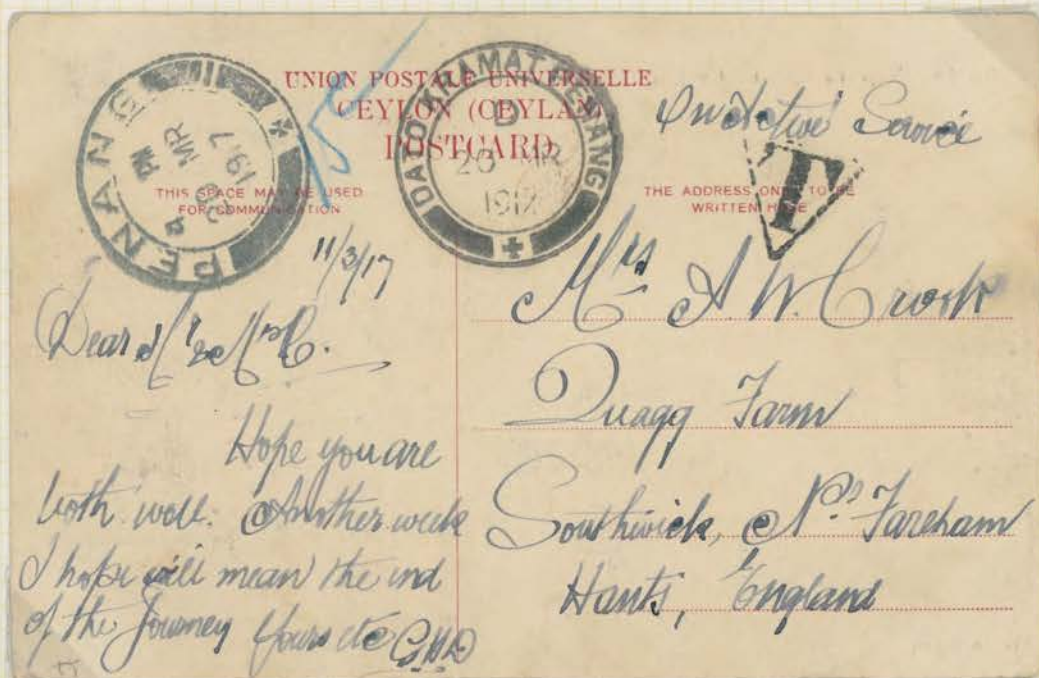 UNION POSTALE UNIVERSELLE
CEYLON (CEYLAN)
POSTCARD
THIS SPACE MAY BE USED
FOR COMMUNICATION
THE ADDRESS ONLY TO BE
WRITTEN HERE
PENANG
PM
20 MR
1917
DATOH KRAMAT PENANG
D
20 MR
1917
On Active Service
T
11/3/17
Dear Mr & Mrs C.
Hope you are
both well. Another week
I hope will mean the end
of the Journey Yours etc
Mrs A. W. Crook
Quagg Farm
Southwick, Nr Fareham
Hants, England